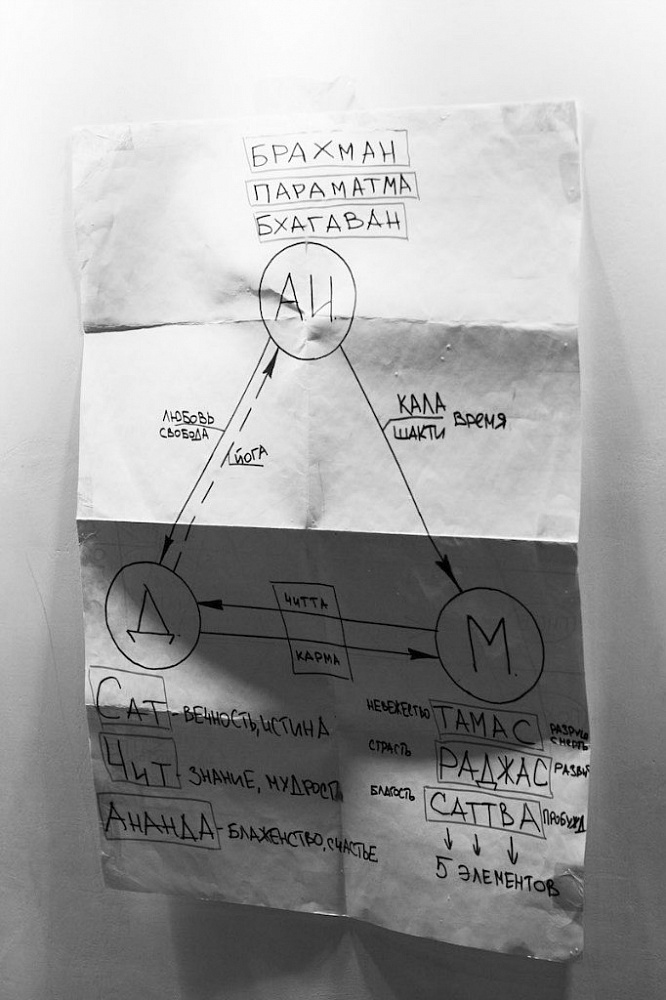 БРАХМАН
ПАРАМАТМА
БХАГАВАН
АИ.
ЛЮБОВЬ
СВОБОДА
ЙОГА
КАЛА
ШАКТИ ВРЕМЯ
Д.
ЧИТТА
КАРМА
М.
САТ - ВЕЧНОСТЬ, ИСТИНА
ЧИТ - ЗНАНИЕ, МУДРОСТЬ
АНАНДА - БЛАЖЕНСТВО, СЧАСТЬЕ
НЕВЕЖЕСТВО ТАМАС
СМЕРТЬ
СТРАСТЬ РАДЖАС
БЛАГОСТЬ САТТВА
5 ЭЛЕМЕНТОВ